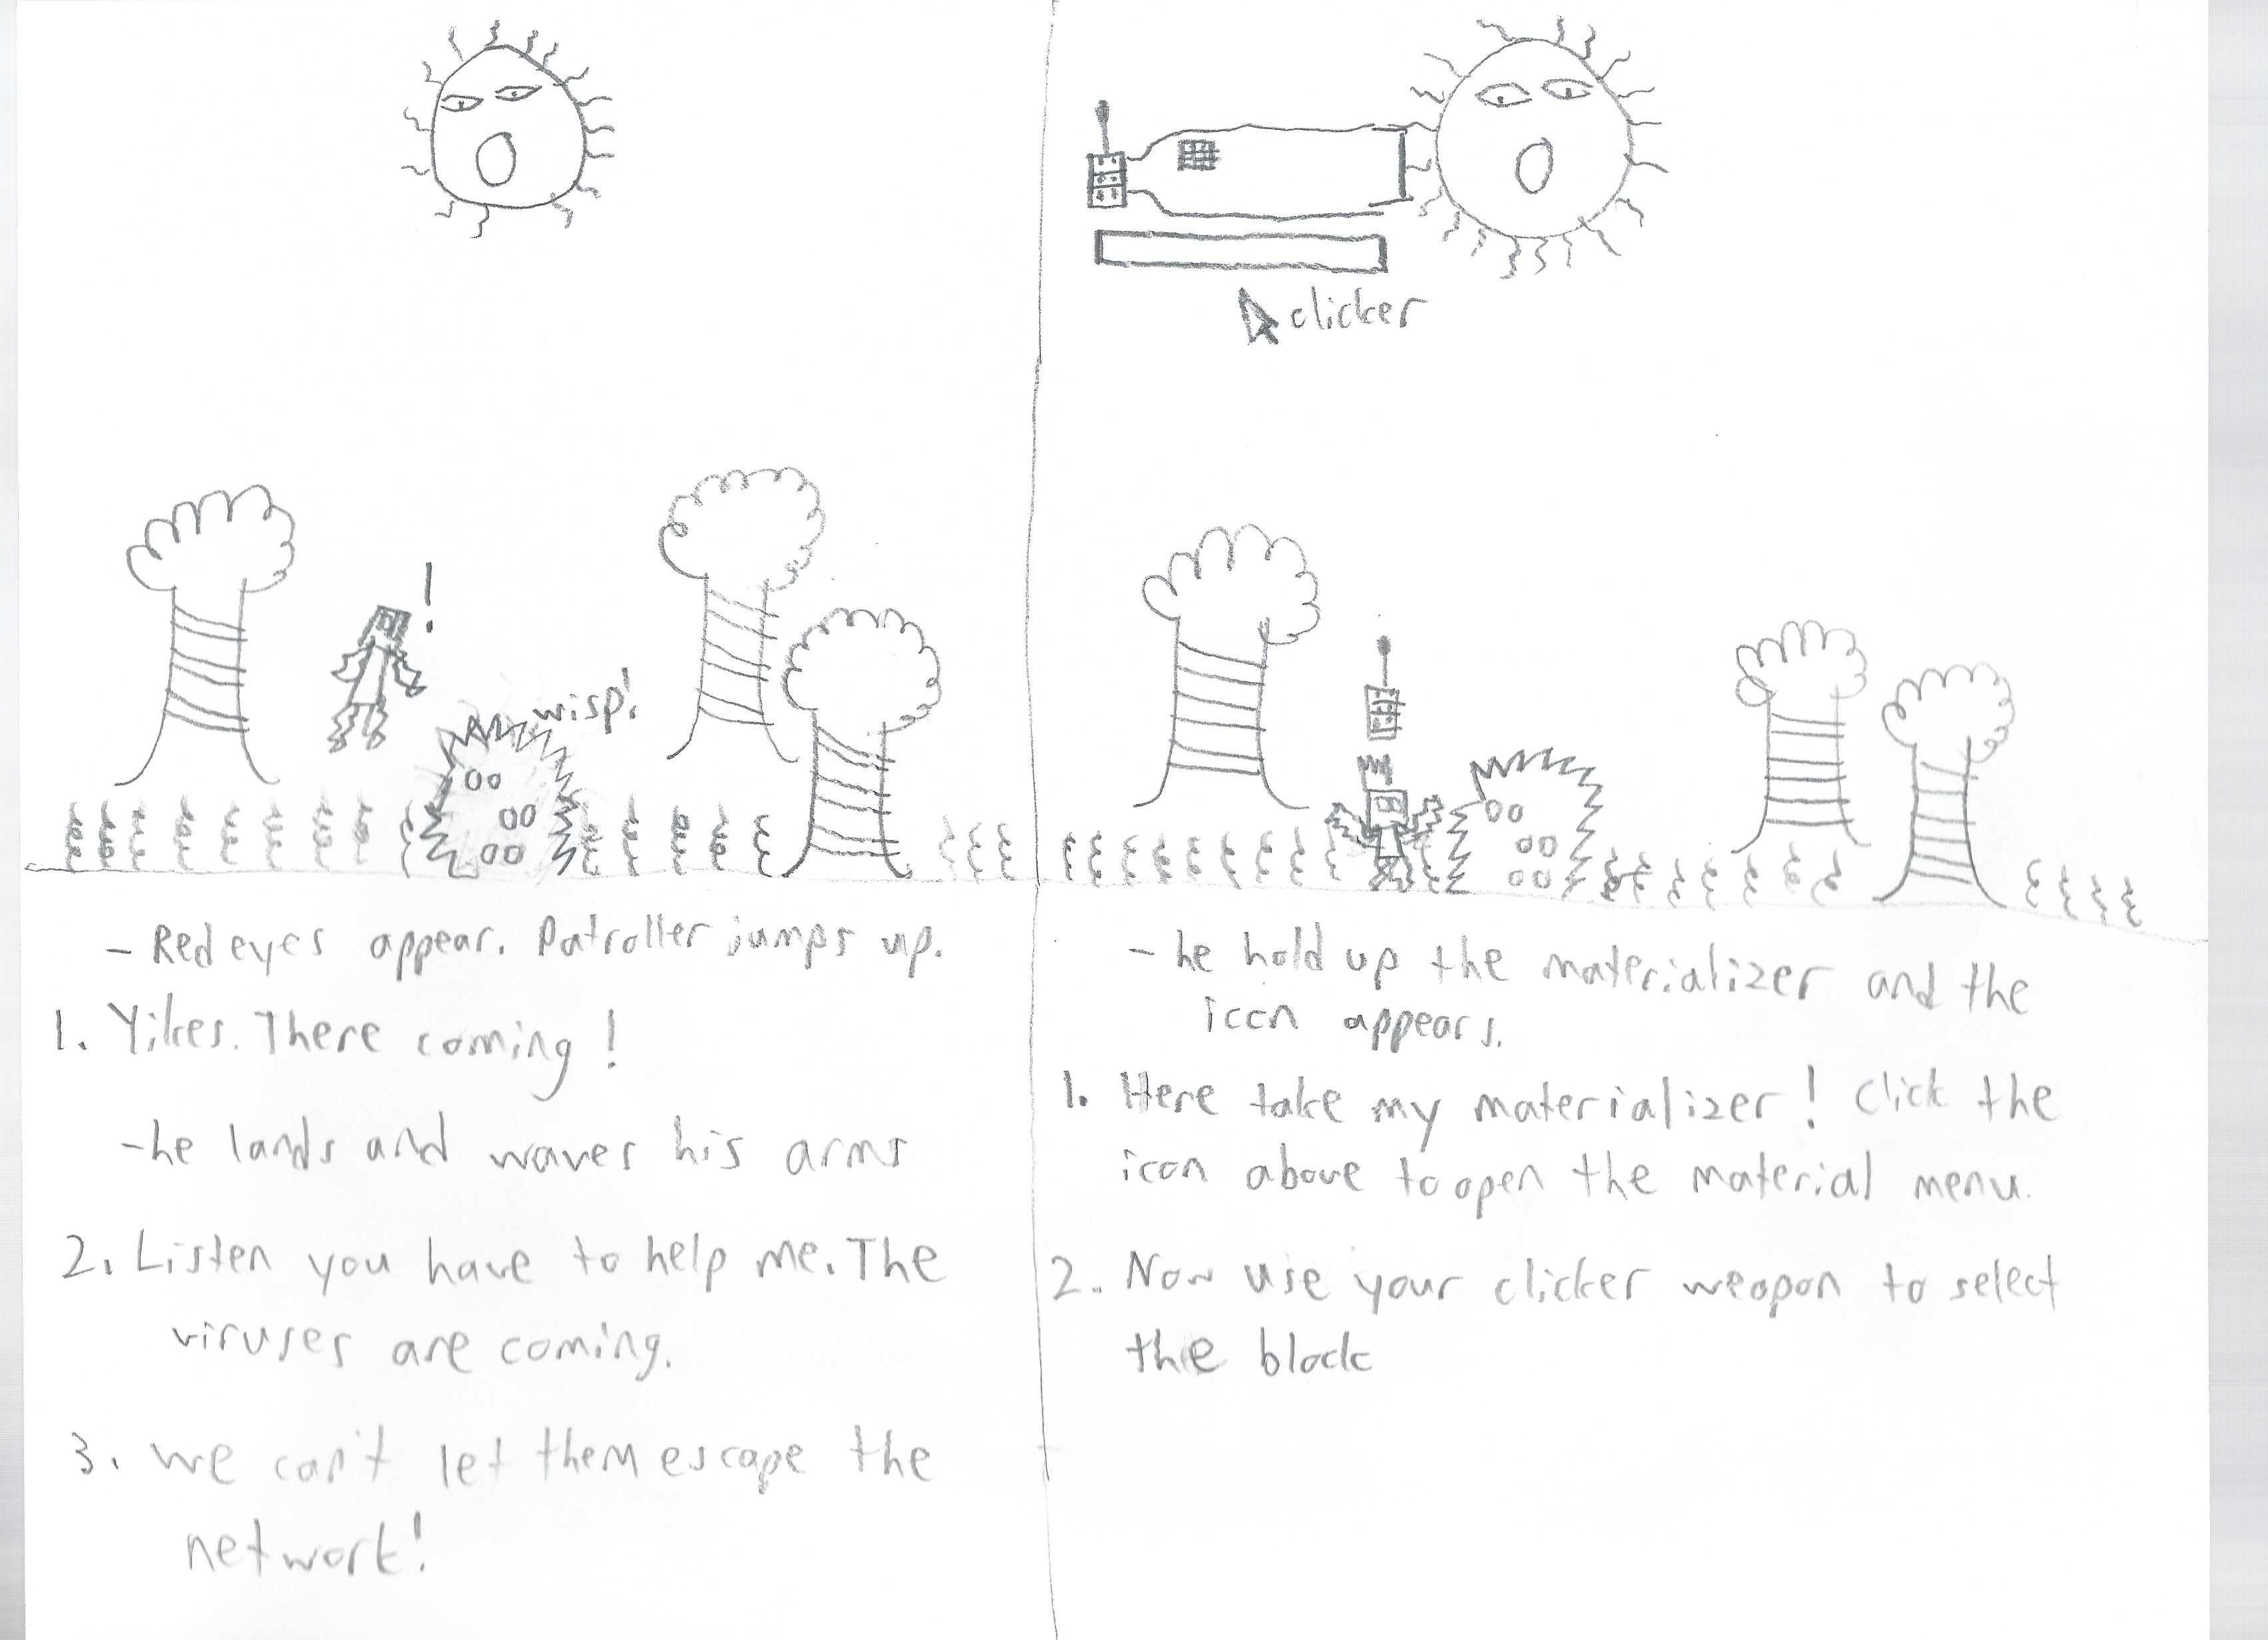 wisp!
- Red eyes appear. Patroller jumps up.
1. Yikes. There coming!
- he lands and waves his arms
2. Listen you have to help me. The
viruses are coming.
3. we can't let them escape the
network!
clicker
- he hold up the materializer and the
icon appears.
1. Here take my materializer! Click the
icon above to open the material menu.
2. Now use your clicker weapon to select
the block